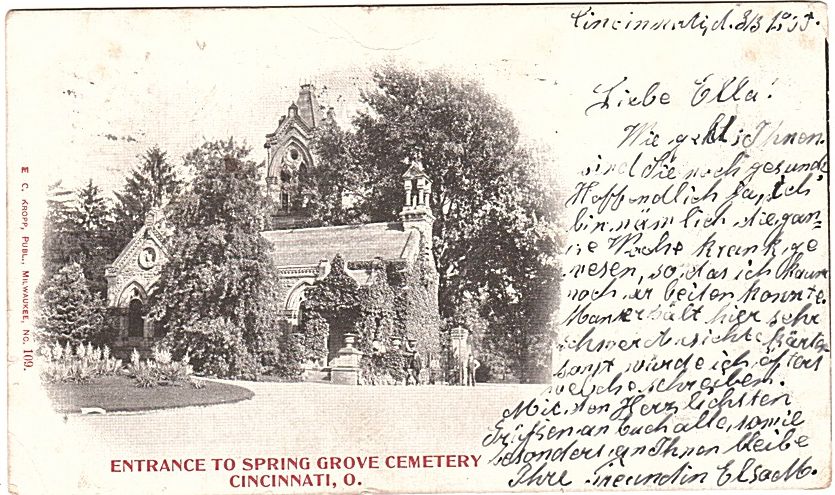 Cincinnati, d. 3/3
Liebe Ella!
Wie geht's Ihnen.
sind Sie noch gesund
Hoffendlich ja, ich
bin nämlich die gan-
ze Woche krank ge
wesen, so das ich kaum
noch arbeiten konnte.
Man erhält hier sehr
schwer Ansichtskarten
sonst würde ich öfters
welche schreiben.
Mit den Herzlichsten
Grüßen an Euch alle, sowie
besonders an Ihnen bleibe
Ihre Freundin Elsa M.
E. C. KROPP, PUBL., MILWAUKEE, No. 109.
ENTRANCE TO SPRING GROVE CEMETERY
CINCINNATI, O.